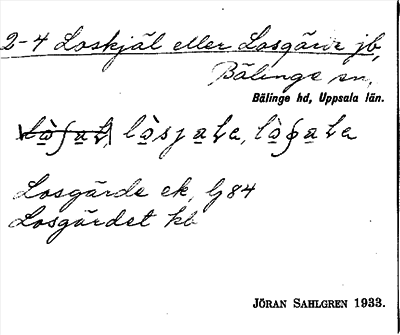 2-4 Loskjäl eller Losgärde jb,
Bälinge sn,
Bälinge hd, Uppsala län.
Losgärde ek, lj 84
Losgärdet kb
JÖRAN SAHLGREN 1933.